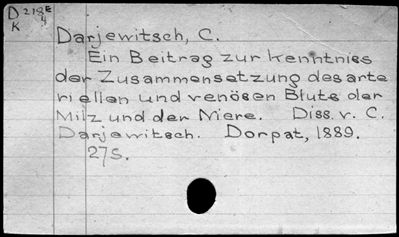 D 218E
K 4
Darjewitsch, C.
Ein Beitrag zur Kenntniss
der Zusammensetzung des arte
riellen und venösen Bluts der
Milz und der Niere. Diss. v. C.
Darjewitsch. Dorpat, 1889.
27S.